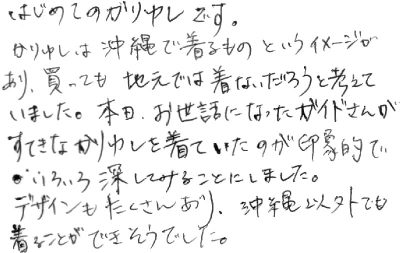 はじめてのかりゆしです。
かりゆしは沖縄で着るものというイメージが
あり、買っても地元では着ないだろうと考えて
いました。本日、お世話になったガイドさんが
すてきなかりゆしを着ていたのが印象的で
いろいろ探してみることにしました。
デザインもたくさんあり、沖縄以外でも
着ることができそうでした。